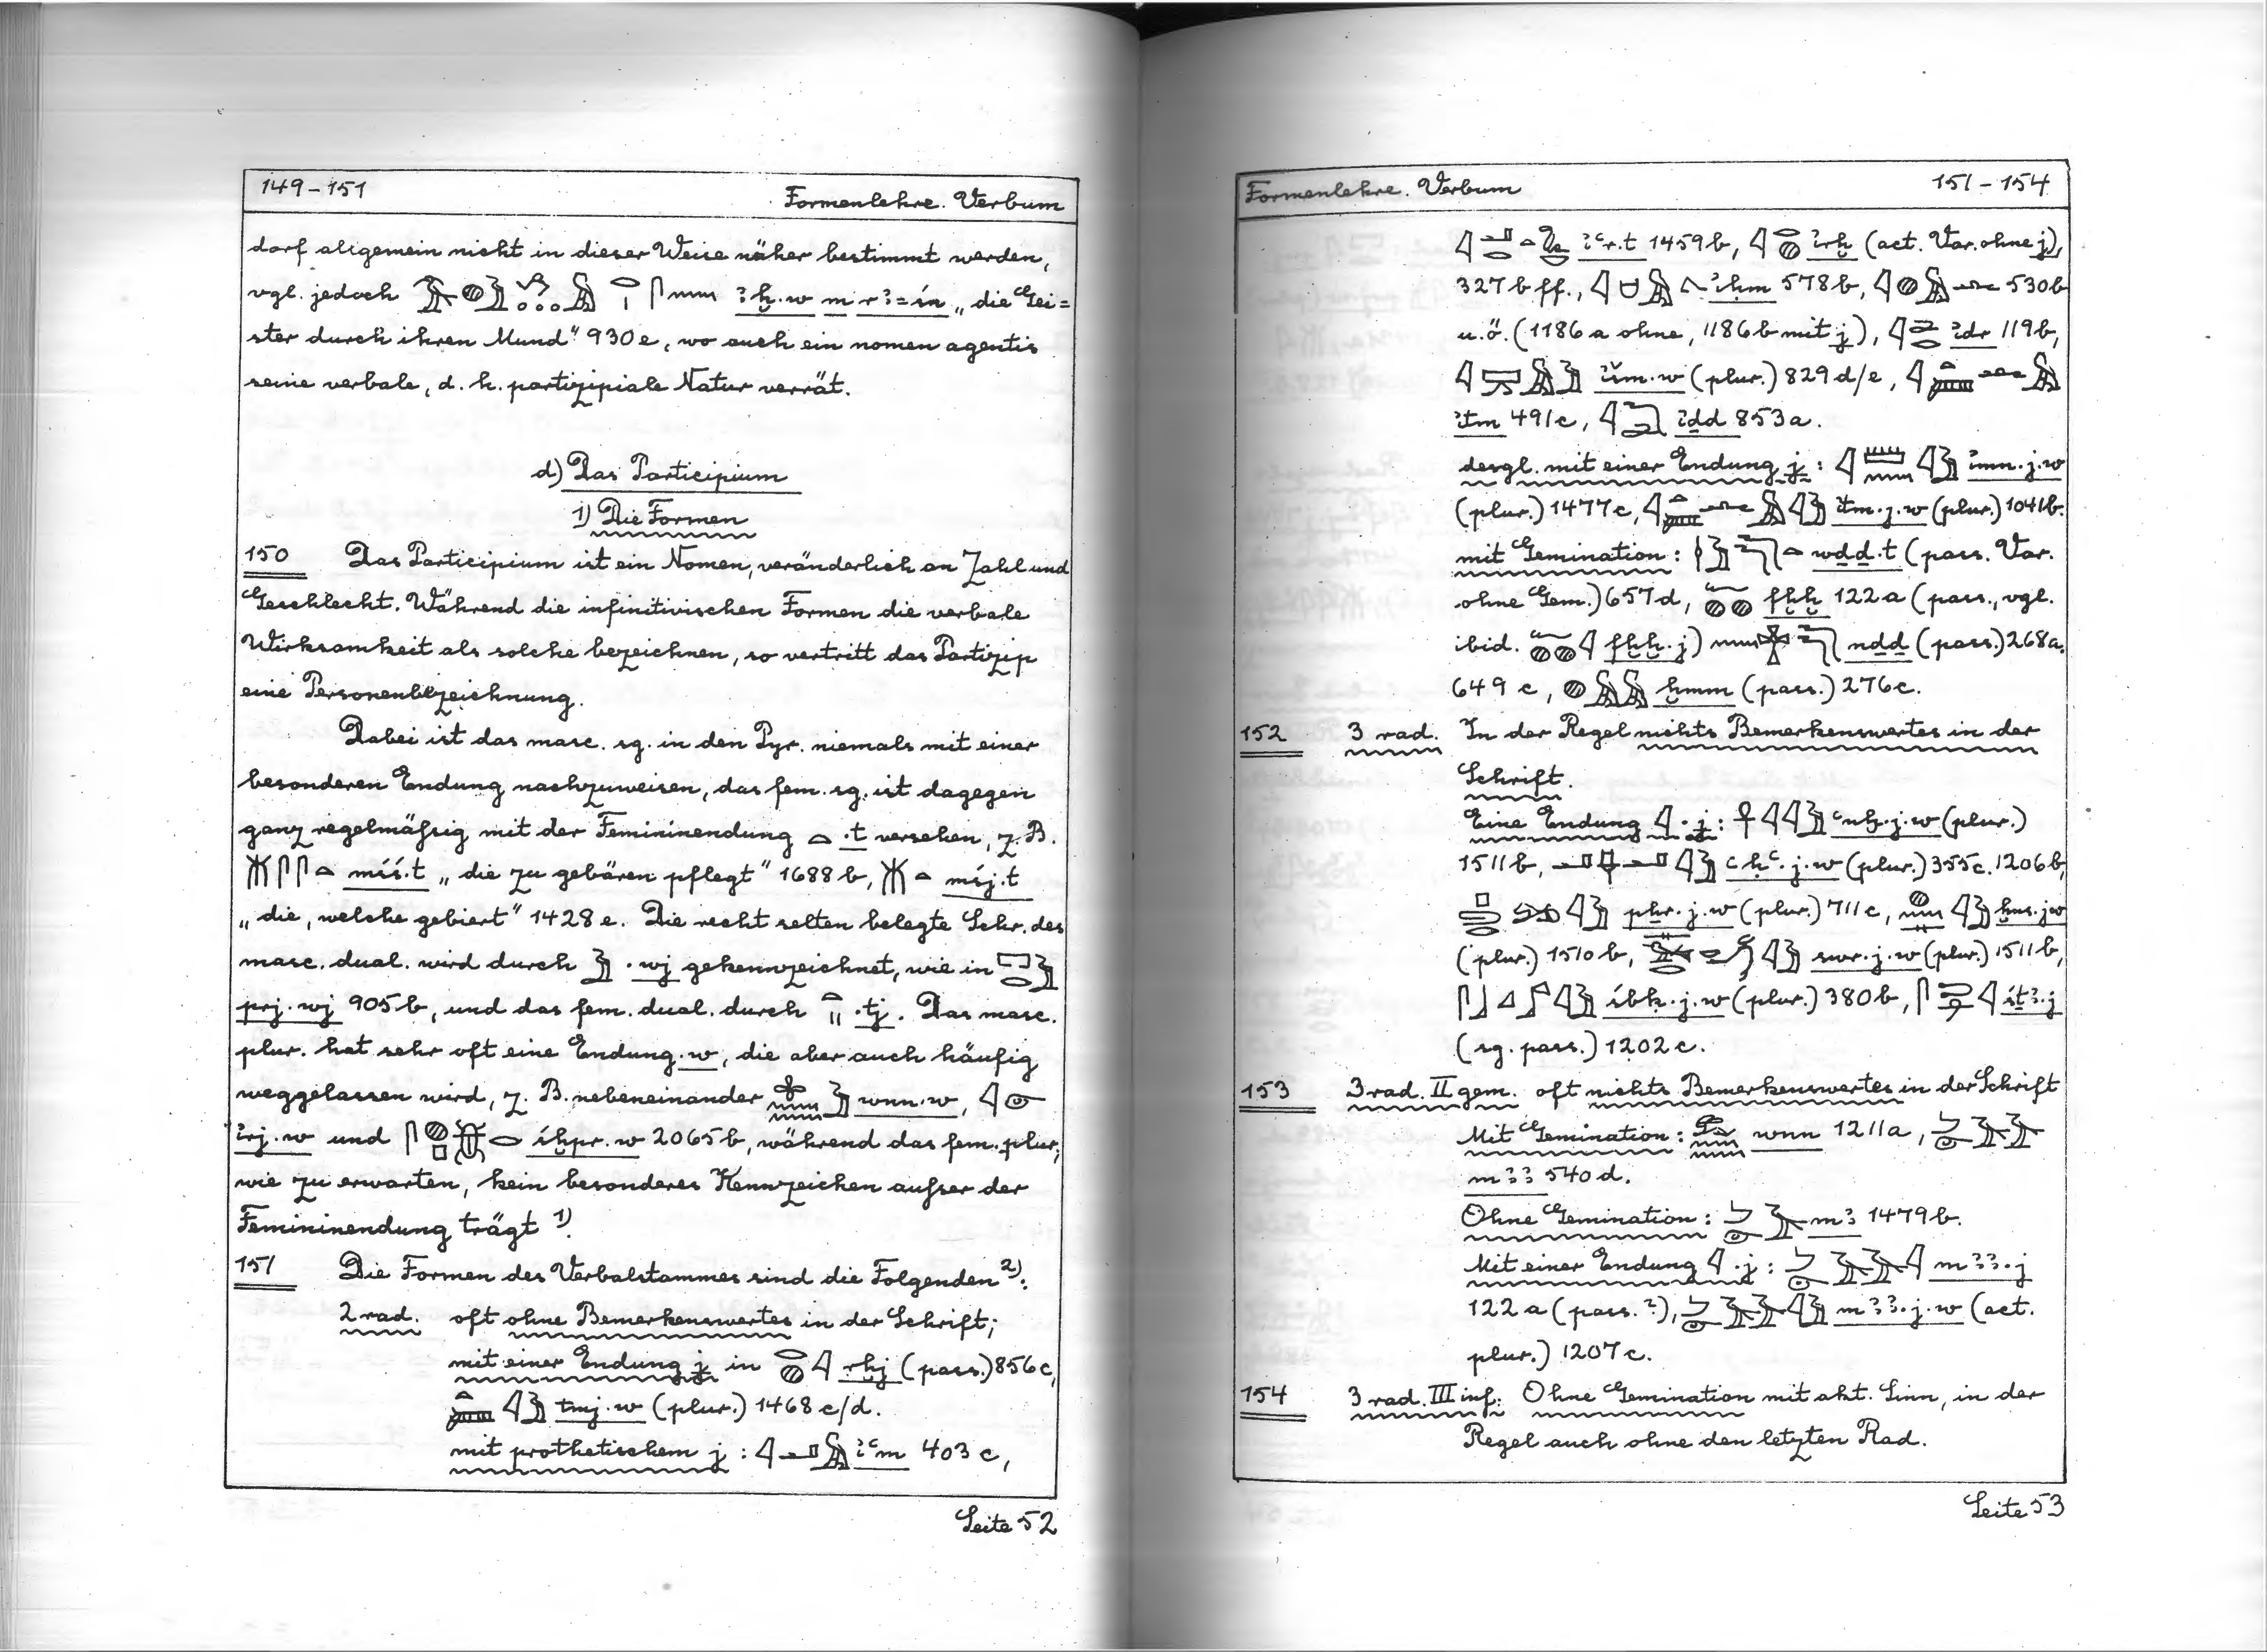 149-151
Formenlehre. Verbum
darf allgemein nicht in dieser Weise näher bestimmt werden,
vgl. jedoch ꜣḫ.w m rꜣ=śn „die Gei=
ster durch ihren Mund" 930e, wo auch ein nomen agentis
seine verbale, d. h. partizipiale Natur verrät.
d) Das Participium
1) Die Formen
150 Das Participium ist ein Nomen, veränderlich an Zahl und
Geschlecht. Während die infinitivischen Formen die verbale
Wirksamkeit als solche bezeichnen, so vertritt das Partizip
eine Personenbezeichnung.
Dabei ist das masc. sg. in den Pyr. niemals mit einer
besonderen Endung nachzuweisen, das fem. sg. ist dagegen
ganz regelmäßig mit der Femininendung .t versehen, z. B.
mśś.t „die zu gebären pflegt" 1688b, mśj.t
„die, welche gebiert" 1428e. Die recht selten belegte Schr. des
masc. dual. wird durch .wj gekennzeichnet, wie in
prj.wj 905b, und das fem. dual. durch .tj. Das masc.
plur. hat sehr oft eine Endung .w, die aber auch häufig
weggelassen wird, z. B. nebeneinander wnn.w,
irj.w und śḫpr.w 2065b, während das fem. plur.,
wie zu erwarten, kein besonderes Kennzeichen außer der
Femininendung trägt 1).
151 Die Formen des Verbalstammes sind die Folgenden 2):
2 rad. oft ohne Bemerkenswertes in der Schrift;
mit einer Endung j in rḫj (pass.) 856c,
tmj.w (plur.) 1468c/d.
mit prothetischem j: iꜥm 403c,
Seite 52
Formenlehre. Verbum
151-154
iꜥr.t 1459b, irḫ (act. Var. ohne j),
327b ff., iḥm 578b, 530b
u. ö. (1186a ohne, 1186b mit j), idr 119b,
išm.w (plur.) 829d/e,
itm 491c, iḏd 853a.
desgl. mit einer Endung j: imn.j.w
(plur.) 1477c, itm.j.w (plur.) 1041b.
mit Gemination: wḏd.t (pass. Var.
ohne Gem.) 657d, fḫḫ 122a (pass., vgl.
ibid. fḫḫ.j) nḏd (pass.) 268a.
649c, ḫmm (pass.) 276c.
152 3 rad. In der Regel nichts Bemerkenswertes in der
Schrift.
Eine Endung .j: ꜥnḫ.j.w (plur.)
1511b, ꜥḥꜥ.j.w (plur.) 355c. 1206b,
pẖr.j.w (plur.) 711c, ḫns.j.w
(plur.) 1510b, swr.j.w (plur.) 1511b,
śbḳ.j.w (plur.) 380b, śṯꜣ.j
(sg. pass.) 1202c.
153 3 rad. II gem. oft nichts Bemerkenswertes in der Schrift
Mit Gemination: wnn 1211a,
mꜣꜣ 540d.
Ohne Gemination: mꜣ 1479b.
Mit einer Endung .j: mꜣꜣ.j
122a (pass.?), mꜣꜣ.j.w (act.
plur.) 1207c.
154 3 rad. III inf: Ohne Gemination mit akt. Sinn, in der
Regel auch ohne den letzten Rad.
Seite 53